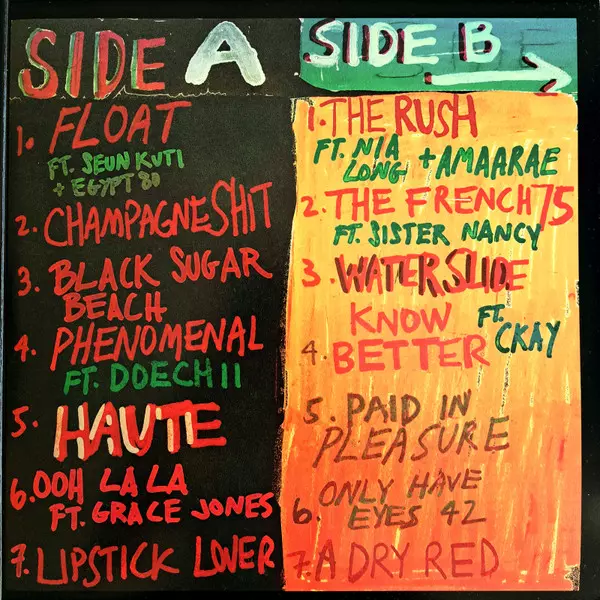 SIDE A
1. FLOAT
FT. SEUN KUTI
+ EGYPT 80
2. CHAMPAGNE SHIT
3. BLACK SUGAR
BEACH
4. PHENOMENAL
FT. DOECHII
5. HAUTE
6. OOH LA LA
FT. GRACE JONES
7. LIPSTICK LOVER
SIDE B
1. THE RUSH
FT. NIA
LONG + AMAARAE
2. THE FRENCH 75
FT. SISTER NANCY
3. WATERSLIDE
4. KNOW
BETTER
FT.
CKAY
5. PAID IN
PLEASURE
6. ONLY HAVE
EYES 42
7. A DRY RED